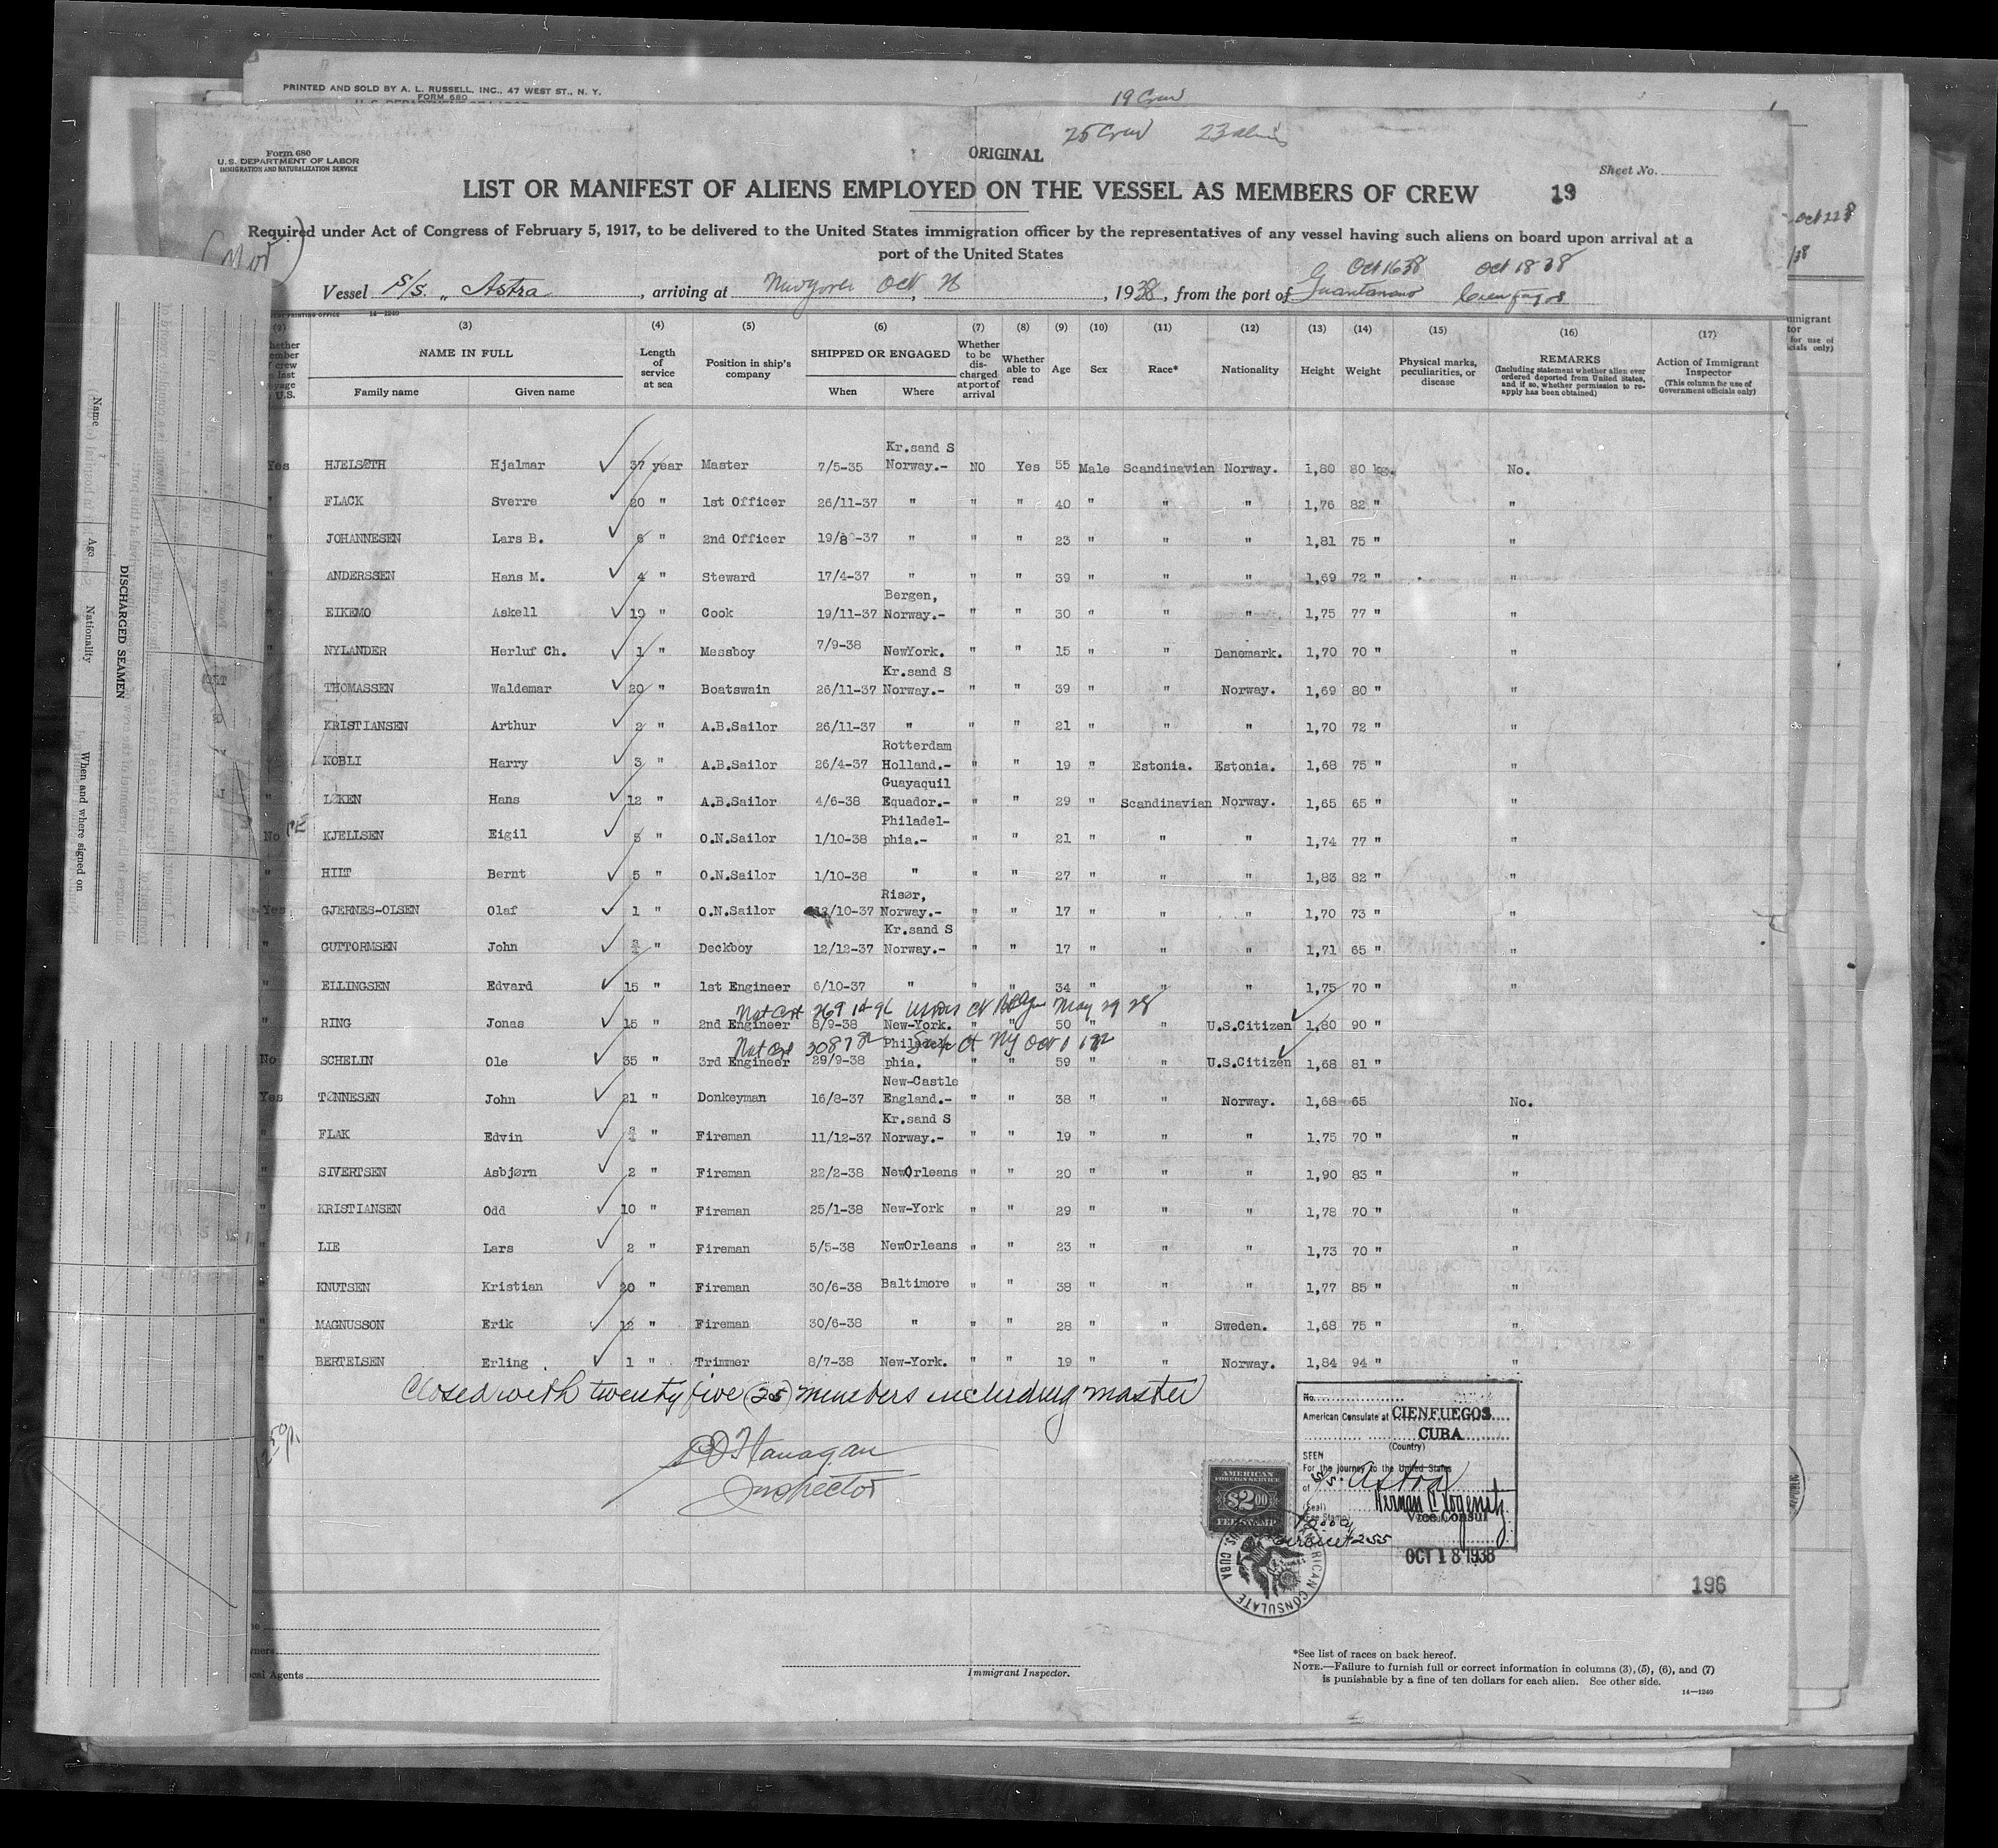 PRINTED AND SOLD BY A. L. RUSSELL, INC., 47 WEST ST., N. Y.
FORM 680
19 Crew
25 Crew 23 aliens
Form 680
U. S. DEPARTMENT OF LABOR
IMMIGRATION AND NATURALIZATION SERVICE
ORIGINAL
Sheet No.
LIST OR MANIFEST OF ALIENS EMPLOYED ON THE VESSEL AS MEMBERS OF CREW 19
Required under Act of Congress of February 5, 1917, to be delivered to the United States immigration officer by the representatives of any vessel having such aliens on board upon arrival at a
port of the United States
(Nor)
Oct 16 38 Oct 18 38
Vessel S/S. „ Astra, arriving at New York Oct, 1938, from the port of Guantanamo Cienfuegos
14—1240
(2) (3) (4) (5) (6) (7) (8) (9) (10) (11) (12) (13) (14) (15) (16) (17)
NAME IN FULL
Family name Given name
Length of service at sea
Position in ship's company
SHIPPED OR ENGAGED
When Where
Whether to be discharged at port of arrival
Whether able to read
Age Sex Race* Nationality Height Weight
Physical marks, peculiarities, or disease
REMARKS
(Including statement whether alien ever ordered deported from United States, and if so, whether permission to reapply has been obtained)
Action of Immigrant Inspector
(This column for use of Government officials only)
Kr.sand S
Yes HJELSETH Hjalmar 37 year Master 7/5-35 Norway.- NO Yes 55 Male Scandinavian Norway. 1,80 80 kg. No.
" FLACK Sverre 20 " 1st Officer 26/11-37 " " " 40 " " " 1,76 82 " "
" JOHANNESEN Lars B. 6 " 2nd Officer 19/8-37 " " " 23 " " " 1,81 75 " "
" ANDERSSEN Hans M. 4 " Steward 17/4-37 " " " 39 " " " 1,69 72 " "
Bergen,
" EIKEMO Askell 19 " Cook 19/11-37 Norway.- " " 30 " " " 1,75 77 " "
" NYLANDER Herluf Ch. 1 " Messboy 7/9-38 NewYork. " " 15 " " Danemark. 1,70 70 " "
Kr.sand S
" THOMASSEN Waldemar 20 " Boatswain 26/11-37 Norway.- " " 39 " " Norway. 1,69 80 " "
KRISTIANSEN Arthur 2 " A.B.Sailor 26/11-37 " " " 21 " " " 1,70 72 " "
Rotterdam
KOBLI Harry 3 " A.B.Sailor 26/4-37 Holland.- " " 19 " Estonia. Estonia. 1,68 75 " "
Guayaquil
" LØKEN Hans 12 " A.B.Sailor 4/6-38 Equador.- " " 29 " Scandinavian Norway. 1,65 65 " "
Philadel-
No KJELLSEN Eigil 5 " O.N.Sailor 1/10-38 phia.- " " 21 " " " 1,74 77 " "
" HILT Bernt 5 " O.N.Sailor 1/10-38 " " " 27 " " " 1,83 82 " "
Risør,
Yes GJERNES-OLSEN Olaf 1 " O.N.Sailor 12/10-37 Norway.- " " 17 " " " 1,70 73 " "
Kr.sand S
" GUTTORMSEN John ¾ " Deckboy 12/12-37 Norway.- " " 17 " " " 1,71 65 " "
" ELLINGSEN Edvard 15 " 1st Engineer 6/10-37 " " " 34 " " " 1,75 70 " "
Nat Cert May 29 28
" RING Jonas 15 " 2nd Engineer 8/9-38 New-York. " " 50 " " U.S.Citizen 1,80 90 "
Nat Cert Philadel- Ct NY Oct
No SCHELIN Ole 35 " 3rd Engineer 29/9-38 phia. " " 59 " " U.S.Citizen 1,68 81 "
New-Castle
Yes TØNNESEN John 21 " Donkeyman 16/8-37 England.- " " 38 " " Norway. 1,68 65 No.
Kr.sand S
" FLAK Edvin ¾ " Fireman 11/12-37 Norway.- " " 19 " " " 1,75 70 " "
" SIVERTSEN Asbjørn 2 " Fireman 22/2-38 NewOrleans " " 20 " " " 1,90 83 " "
" KRISTIANSEN Odd 10 " Fireman 25/1-38 New-York " " 29 " " " 1,78 70 " "
" LIE Lars 2 " Fireman 5/5-38 NewOrleans " " 23 " " " 1,73 70 " "
" KNUTSEN Kristian 20 " Fireman 30/6-38 Baltimore " " 38 " " " 1,77 85 " "
" MAGNUSSON Erik 12 " Fireman 30/6-38 " " " 28 " " Sweden. 1,68 75 " "
" BERTELSEN Erling 1 " Trimmer 8/7-38 New-York. " " 19 " " Norway. 1,84 94 " "
Closed with twenty five (25) members including master
Flanagan
Inspector
No.
American Consulate at CIENFUEGOS
CUBA
(Country)
SEEN
For the journey to the United States
of S/S. Astra
(Seal)
(Fee Stamp)
Vice Consul
OCT 18 1938
AMERICAN
FOREIGN SERVICE
$2.00
FEE STAMP
AMERICAN CONSULATE
CUBA
196
Agents
Immigrant Inspector.
*See list of races on back hereof.
NOTE.—Failure to furnish full or correct information in columns (3), (5), (6), and (7)
is punishable by a fine of ten dollars for each alien. See other side.
14—1240
DISCHARGED SEAMEN
Name
Age
Nationality
When and where signed on